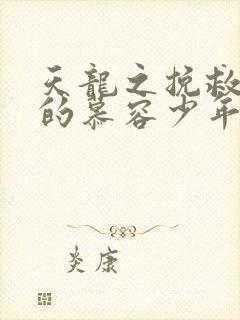 天龍之挽救
的慕容少年
炎康